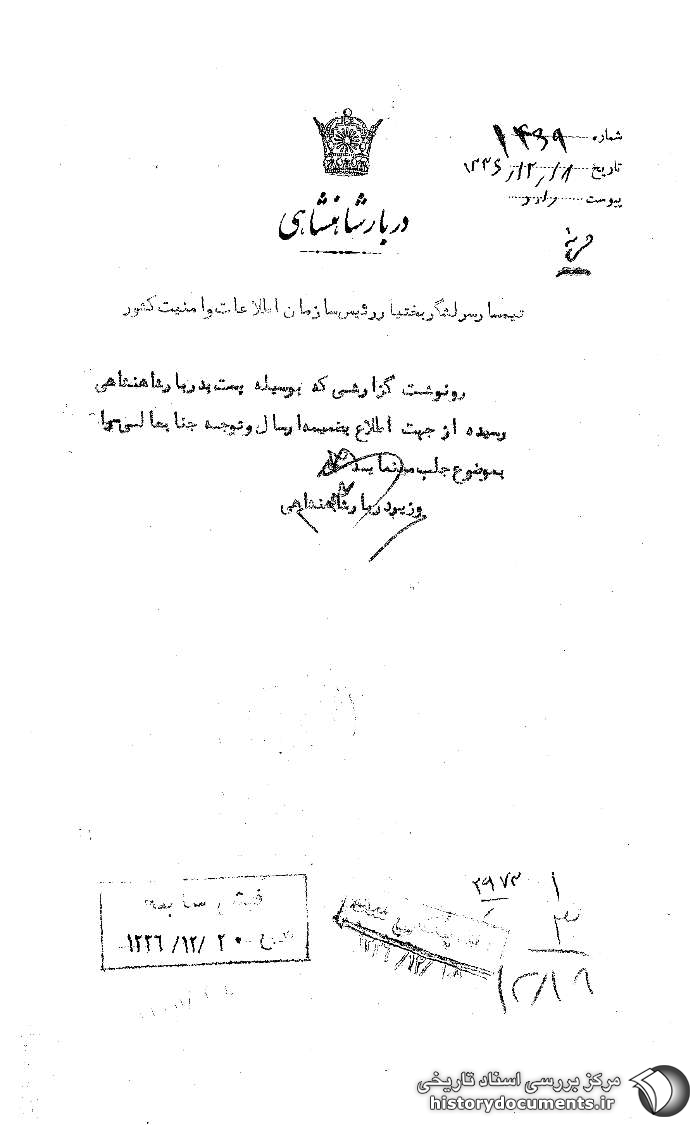 شماره ۱۴۶۹
تاریخ ۱۳۳۶/۱۲/۱۸
پیوست دارد
دربار شاهنشاهی
محرمانه
تیمسار سرلشگر بختیار رئیس سازمان اطلاعات و امنیت کشور
رونوشت گزارشی که بوسیله پست بدربار شاهنشاهی
رسیده از جهت اطلاع بضمیمه ارسال و توجه جنابعالی را
بموضوع جلب مینماید
وزیر دربار شاهنشاهی
۳۹۷۳
فیش سابقه
تاریخ ۱۳۳۶/۱۲/۲۰
۱۲/۱۹
مرکز بررسی اسناد تاریخی
historydocuments.ir